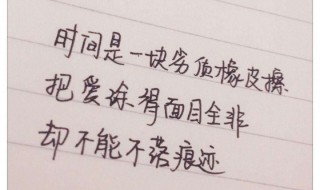 时间是一块劣质橡皮擦
把爱涂得面目全非
却不能不落痕迹